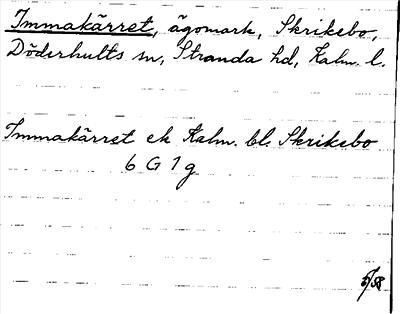 Immakärret, ägomark, Skrikebo,
Döderhults sn, Stranda hd, Kalm. l.
Immakärret ek Kalm. bl. Skrikebo
6 G 1 g
5/58